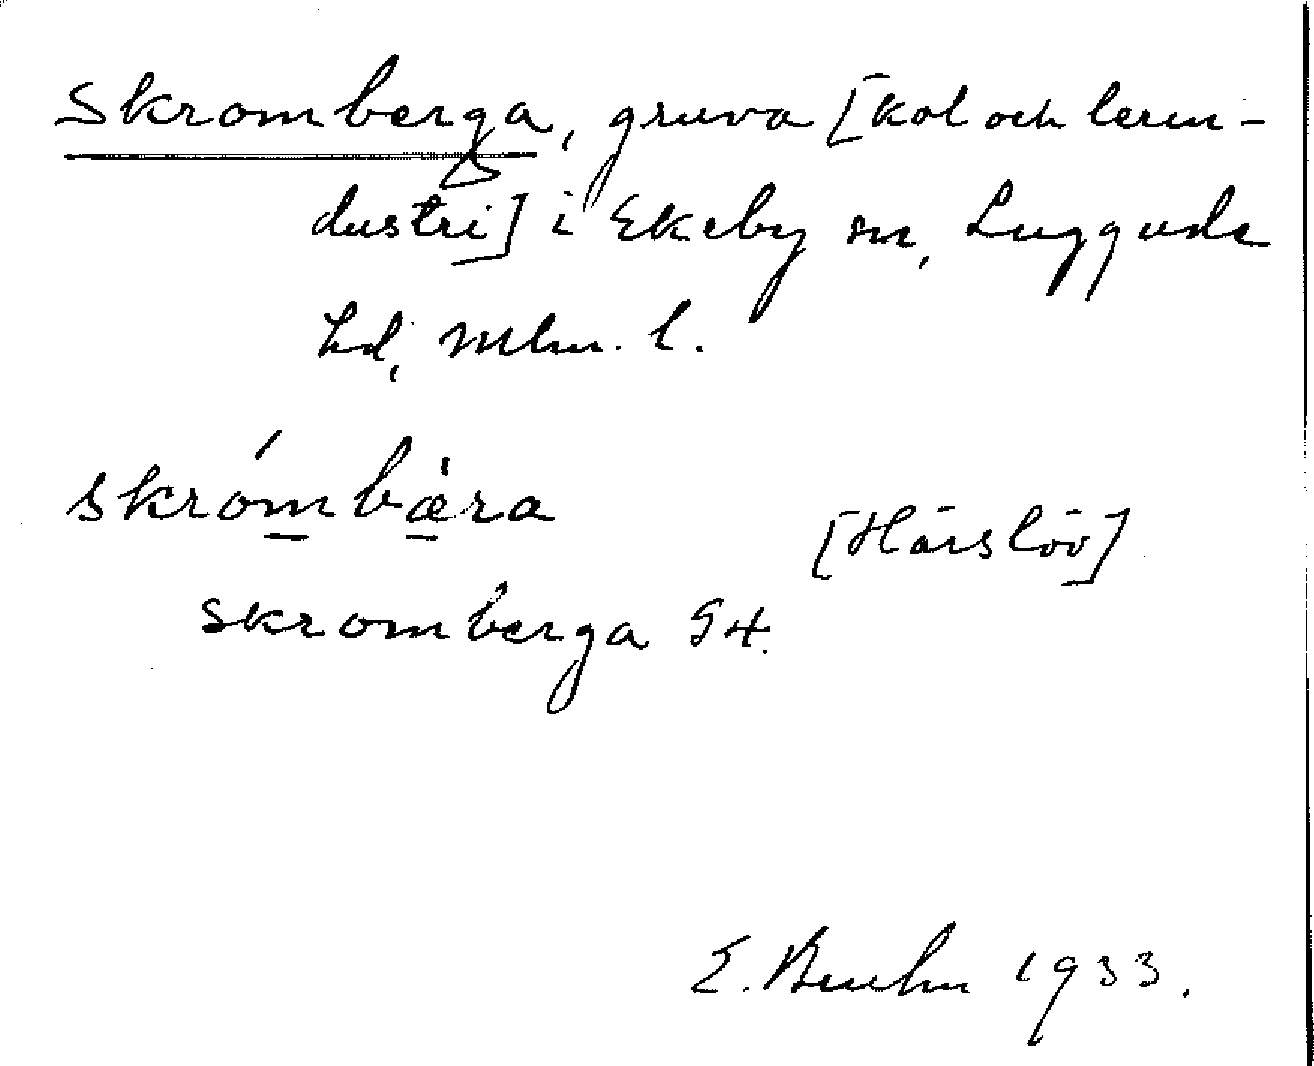 Skromberga, gruva [kol och lerin-
dustri] i Ekeby sn, Luggude
hd, Mlm. l.
skrómbæ̀ra
[Härslöv]
Skromberga G4.
E. Buhn 1933.